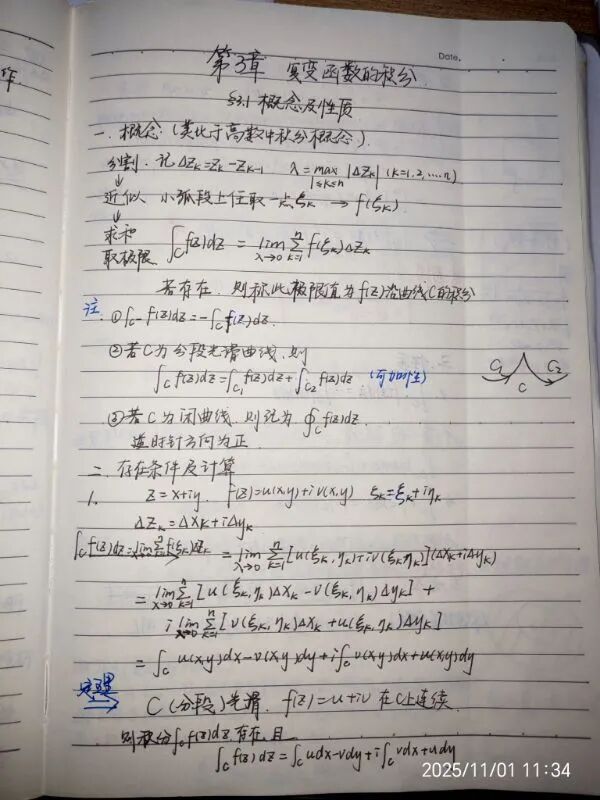 Date.
作
第3章 复变函数的积分
§3.1 概念及性质
一. 概念:(类比于高数中积分概念)
分割. 记 ΔZk=Zk-Zk-1 λ=max|ΔZk| (k=1,2,...,n)
1≤k≤n
↓
近似 小弧段上任取一点ξk → f(ξk)
↓
求和
取极限 ∫c f(z)dz = lim λ→0 Σ k=1 n f(ξk)ΔZk
若存在, 则称此极限值为f(z)沿曲线C的积分
注. ①∫c- f(z)dz=-∫c f(z)dz.
②若C为分段光滑曲线,则
∫c f(z)dz=∫c1 f(z)dz+∫c2 f(z)dz (可加性)
C1 C C2
③若C为闭曲线,则记为 ∮c f(z)dz.
逆时针方向为正.
二. 存在条件及计算
1. z=x+iy. f(z)=u(x,y)+iv(x,y) ξk=ξk+iηk
ΔZk=Δxk+iΔyk
∫c f(z)dz=lim λ→0 Σ k=1 n f(ξk)ΔZk = lim λ→0 Σ k=1 n [u(ξk,ηk)+iv(ξk,ηk)](Δxk+iΔyk)
= lim λ→0 Σ k=1 n [u(ξk,ηk)Δxk-v(ξk,ηk)Δyk] +
i lim λ→0 Σ k=1 n [v(ξk,ηk)Δxk+u(ξk,ηk)Δyk]
=∫c u(x,y)dx-v(x,y)dy+i∫c v(x,y)dx+u(x,y)dy
定理
⇒ C(分段)光滑. f(z)=u+iv 在C上连续.
则积分∫c f(z)dz 存在,且
∫c f(z)dz=∫c udx-vdy+i∫c vdx+udy
2025/11/01 11:34